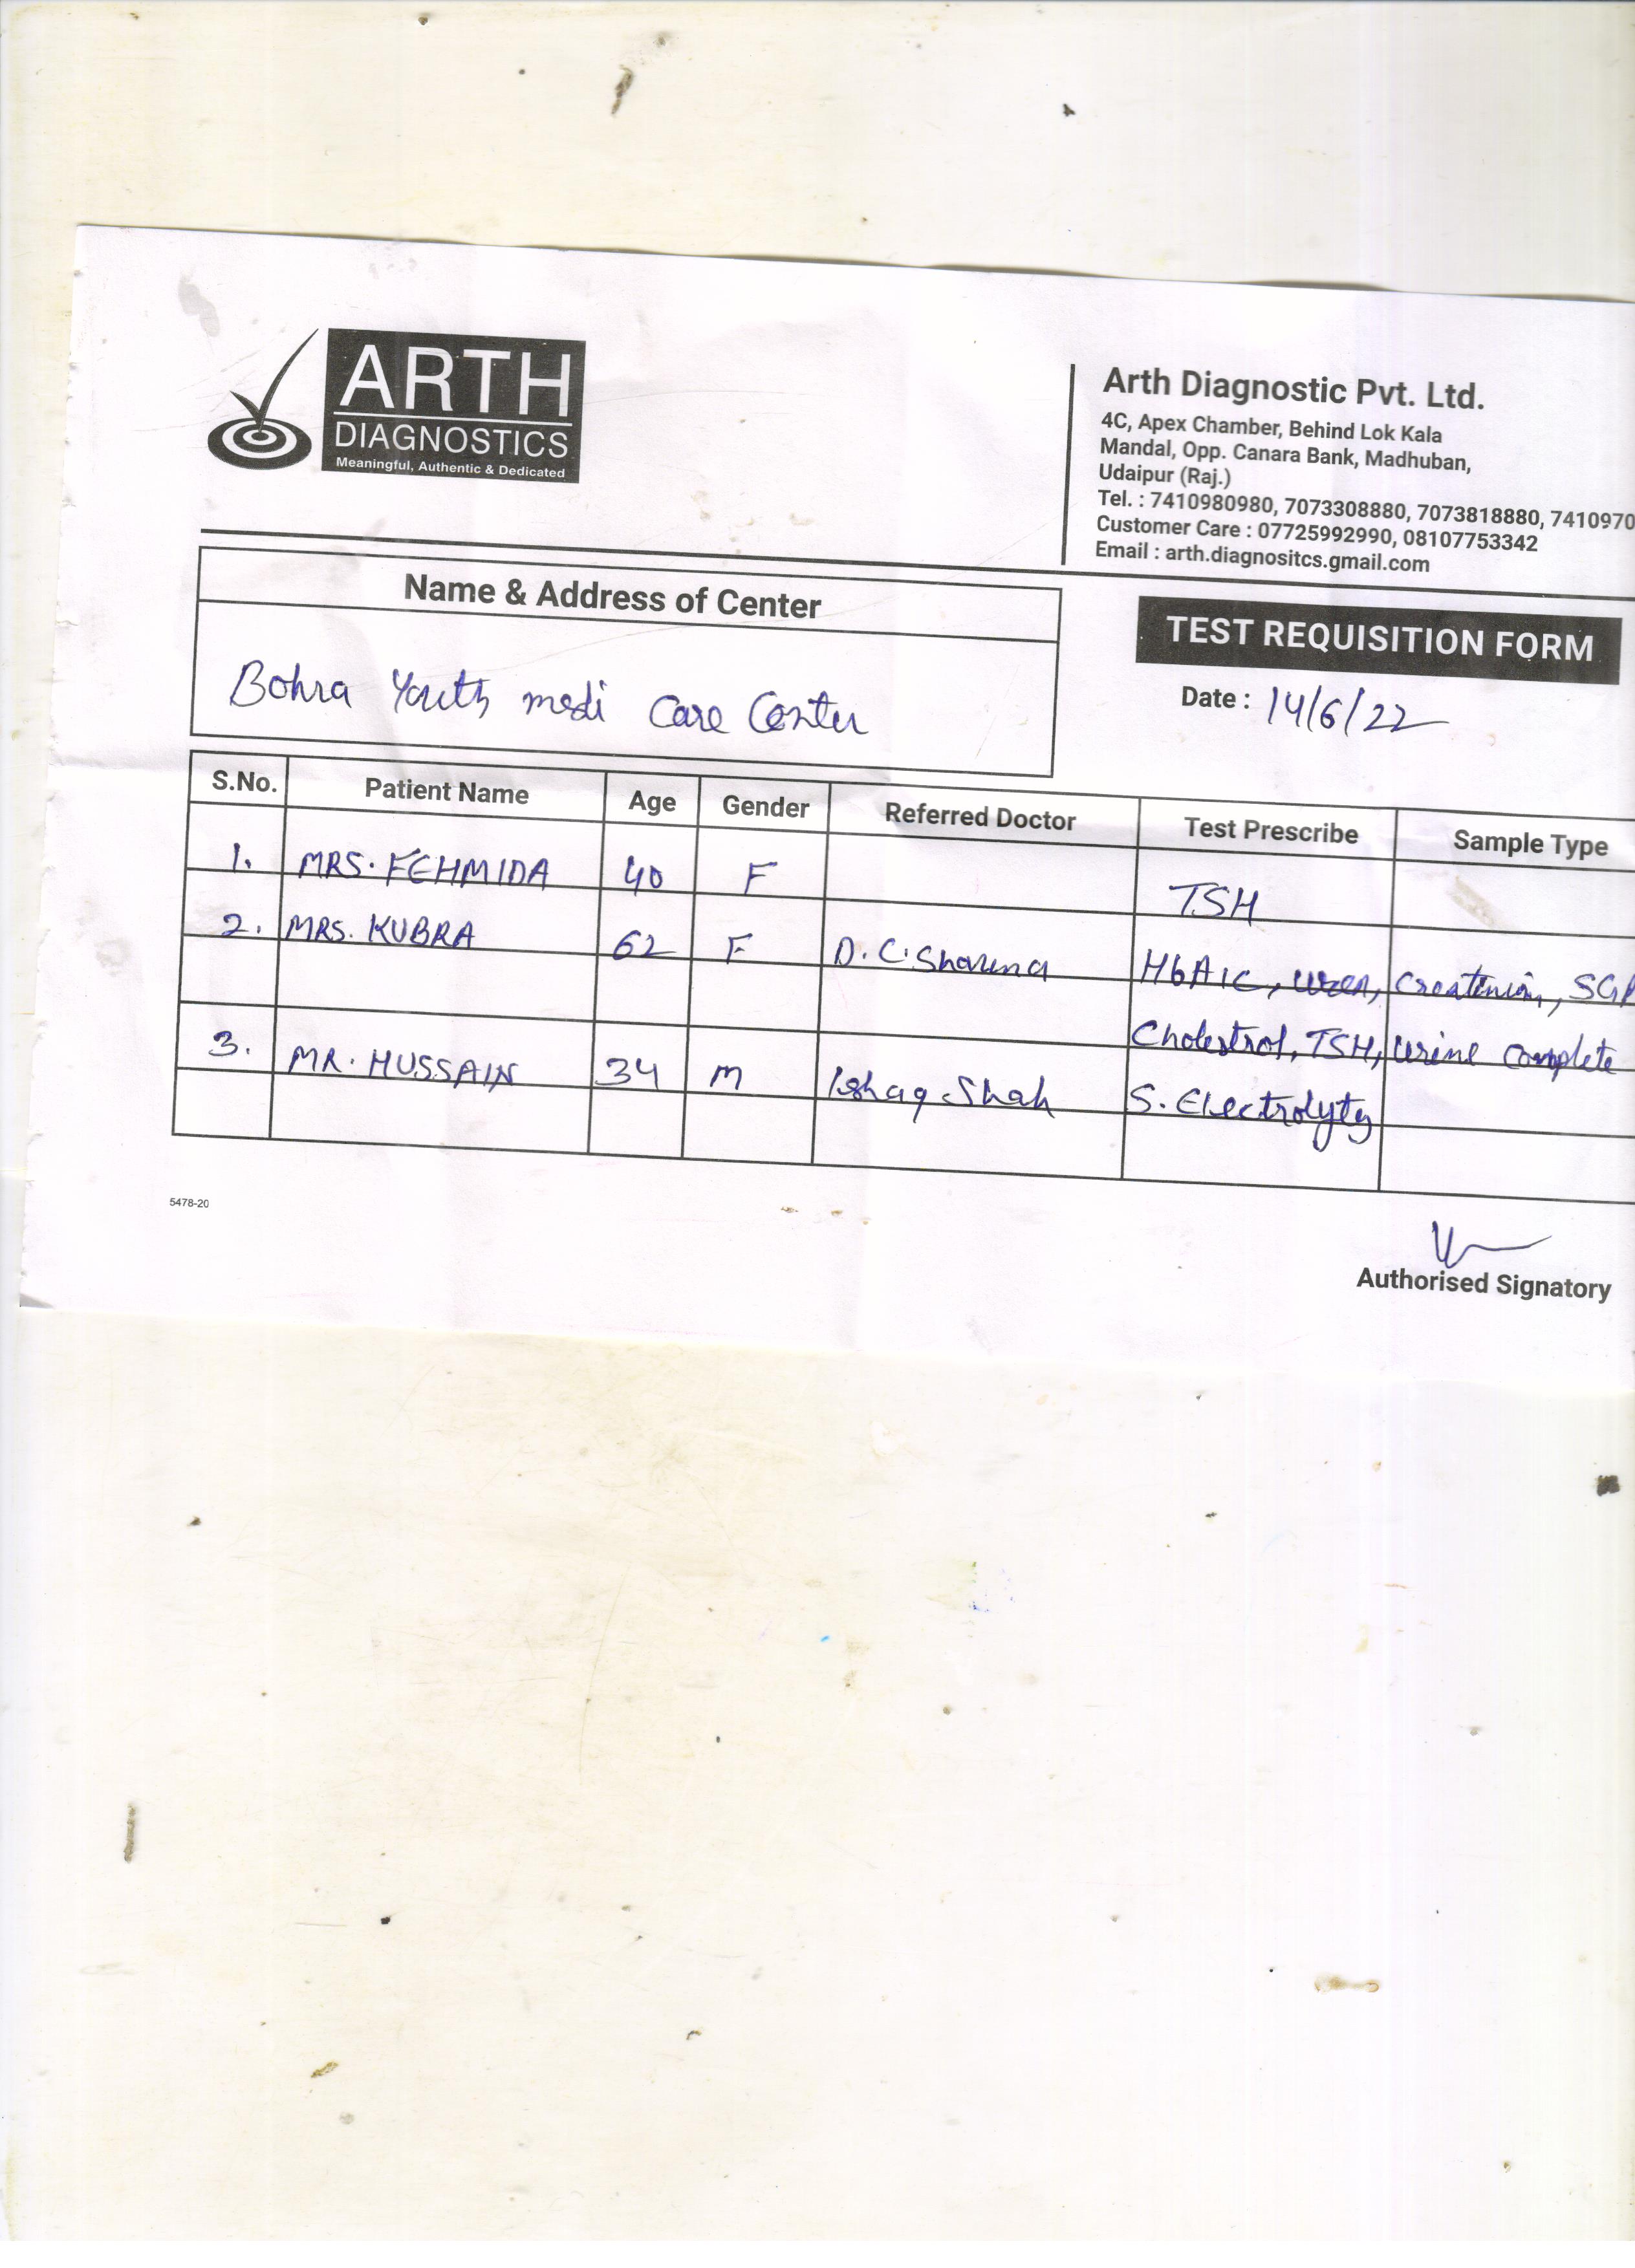 ARTH
DIAGNOSTICS
Meaningful, Authentic & Dedicated
Arth Diagnostic Pvt. Ltd.
4C, Apex Chamber, Behind Lok Kala
Mandal, Opp. Canara Bank, Madhuban,
Udaipur (Raj.)
Tel. : 7410980980, 7073308880, 7073818880, 7410970
Customer Care : 07725992990, 08107753342
Email : arth.diagnositcs.gmail.com
Name & Address of Center
Bohra Youth medi Care Center
TEST REQUISITION FORM
Date : 14/6/22
S.No. Patient Name Age Gender Referred Doctor Test Prescribe Sample Type
1. MRS. FEHMIDA 40 F TSH
2. MRS. KUBRA 62 F D.C. Sharma HbA1C, Creatinin, SGP
Cholestrol, TSH, Urine Complete
3. MR. HUSSAIN 34 M Ishaq Shah S. Electrolyty
5478-20
Authorised Signatory